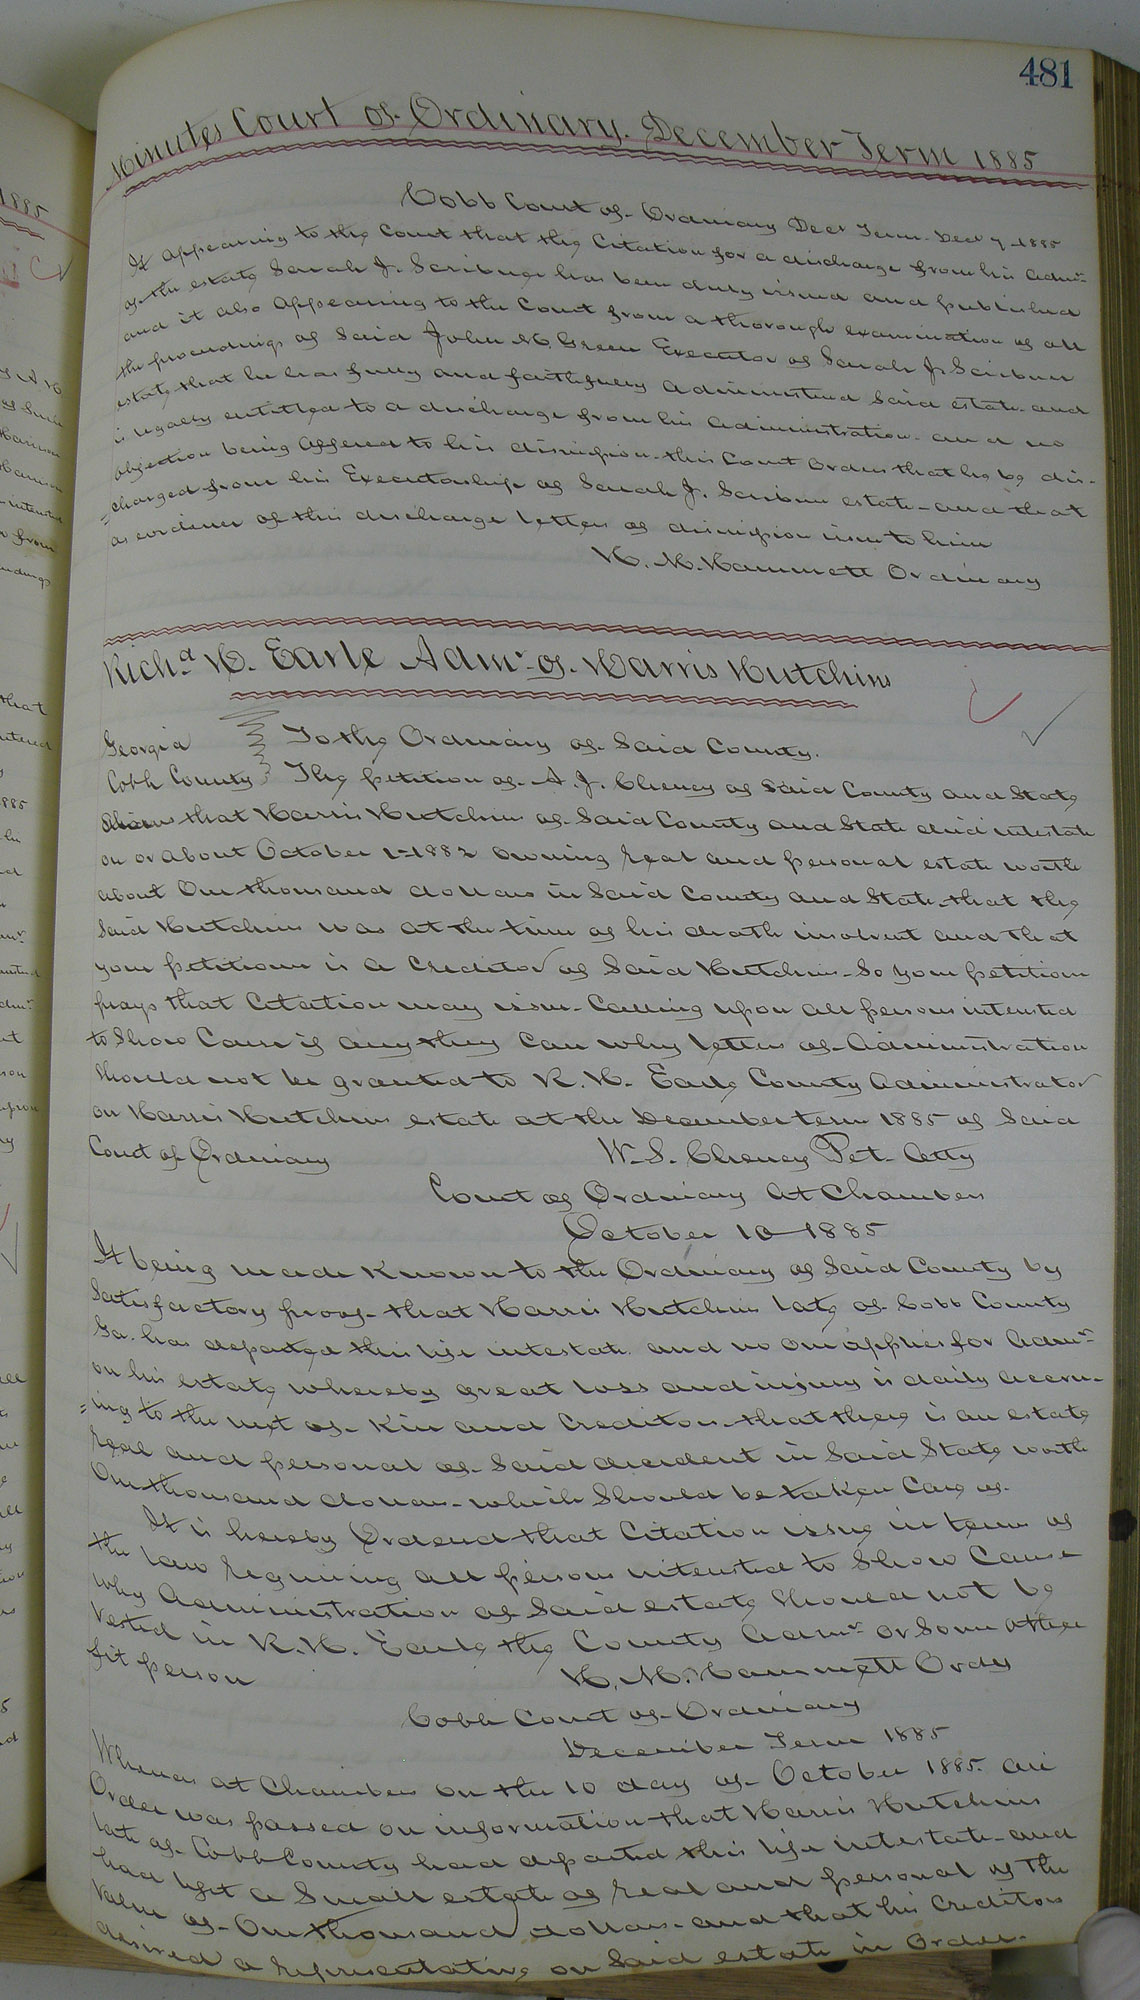 481
Minutes Court of Ordinary. December Term 1885
Cobb Court of Ordinary Decr Term. Decr 7 1885
It appearing to the Court that the Citation for a discharge from his Admr
of the estate Sarah J. Scribner has been duly issued and published
and it also appearing to the Court from a thorough examination of all
the proceedings of Said John M. Green Executor of Sarah J. Scribner
estate that he has fully and faithfully administered Said estate and
is legally entitled to a discharge from his administration. and no
objection being offered to his dismission this Court Orders that he be dis-
=charged from his Executorship of Sarah J. Scribner estate and that
as evidence of this discharge letters of dismission issue to him
H. M. Hammett Ordinary
Richd H. Earle Admr of Harris Hutchins
Georgia
Cobb County
To the Ordinary of Said County.
The petition of A. J. Cheney of Said County and State
Shows that Harris Hutchins of Said County and State died intestate
on or about October 1-1882 owning real and personal estate worth
about One thousand dollars in Said County and State that the
Said Hutchins was at the time of his death insolvent and that
your petitioner is a Creditor of Said Hutchins. So your petitioner
prays that Citation may issue Calling upon all persons interested
to Show Cause if any they Can why letters of Administration
Should not be granted to R. H. Earle County Administrator
on Harris Hutchins estate at the December term 1885 of Said
Court of Ordinary
W. S. Cheney Pet. Atty
Court of Ordinary At Chambers
October 10 1885
It being made Known to the Ordinary of Said County by
Satisfactory proof that Harris Hutchins late of Cobb County
Ga. has departed this life intestate and no one applies for Admr
on his estate whereby great loss and injury is daily accru-
=ing to the next of Kin and Creditors that there is an estate
real and personal of Said decedent in Said State worth
One thousand dollars which Should be taken Care of.
It is hereby Ordered that Citation issue in terms of
the law requiring all persons interested to Show Cause
why Administration of Said estate Should not be
Vested in R. H. Earle the County Admr or Some other
fit person
H. M. Hammett Ordy
Cobb Court of Ordinary
December Term 1885
Whereas at Chambers on the 10 day of October 1885. an
Order was passed on information that Harris Hutchins
late of Cobb County had departed this life intestate and
had left a Small estate of real and personal of the
Value of One thousand dollars and that his Creditors
desired a representative on Said estate in Order